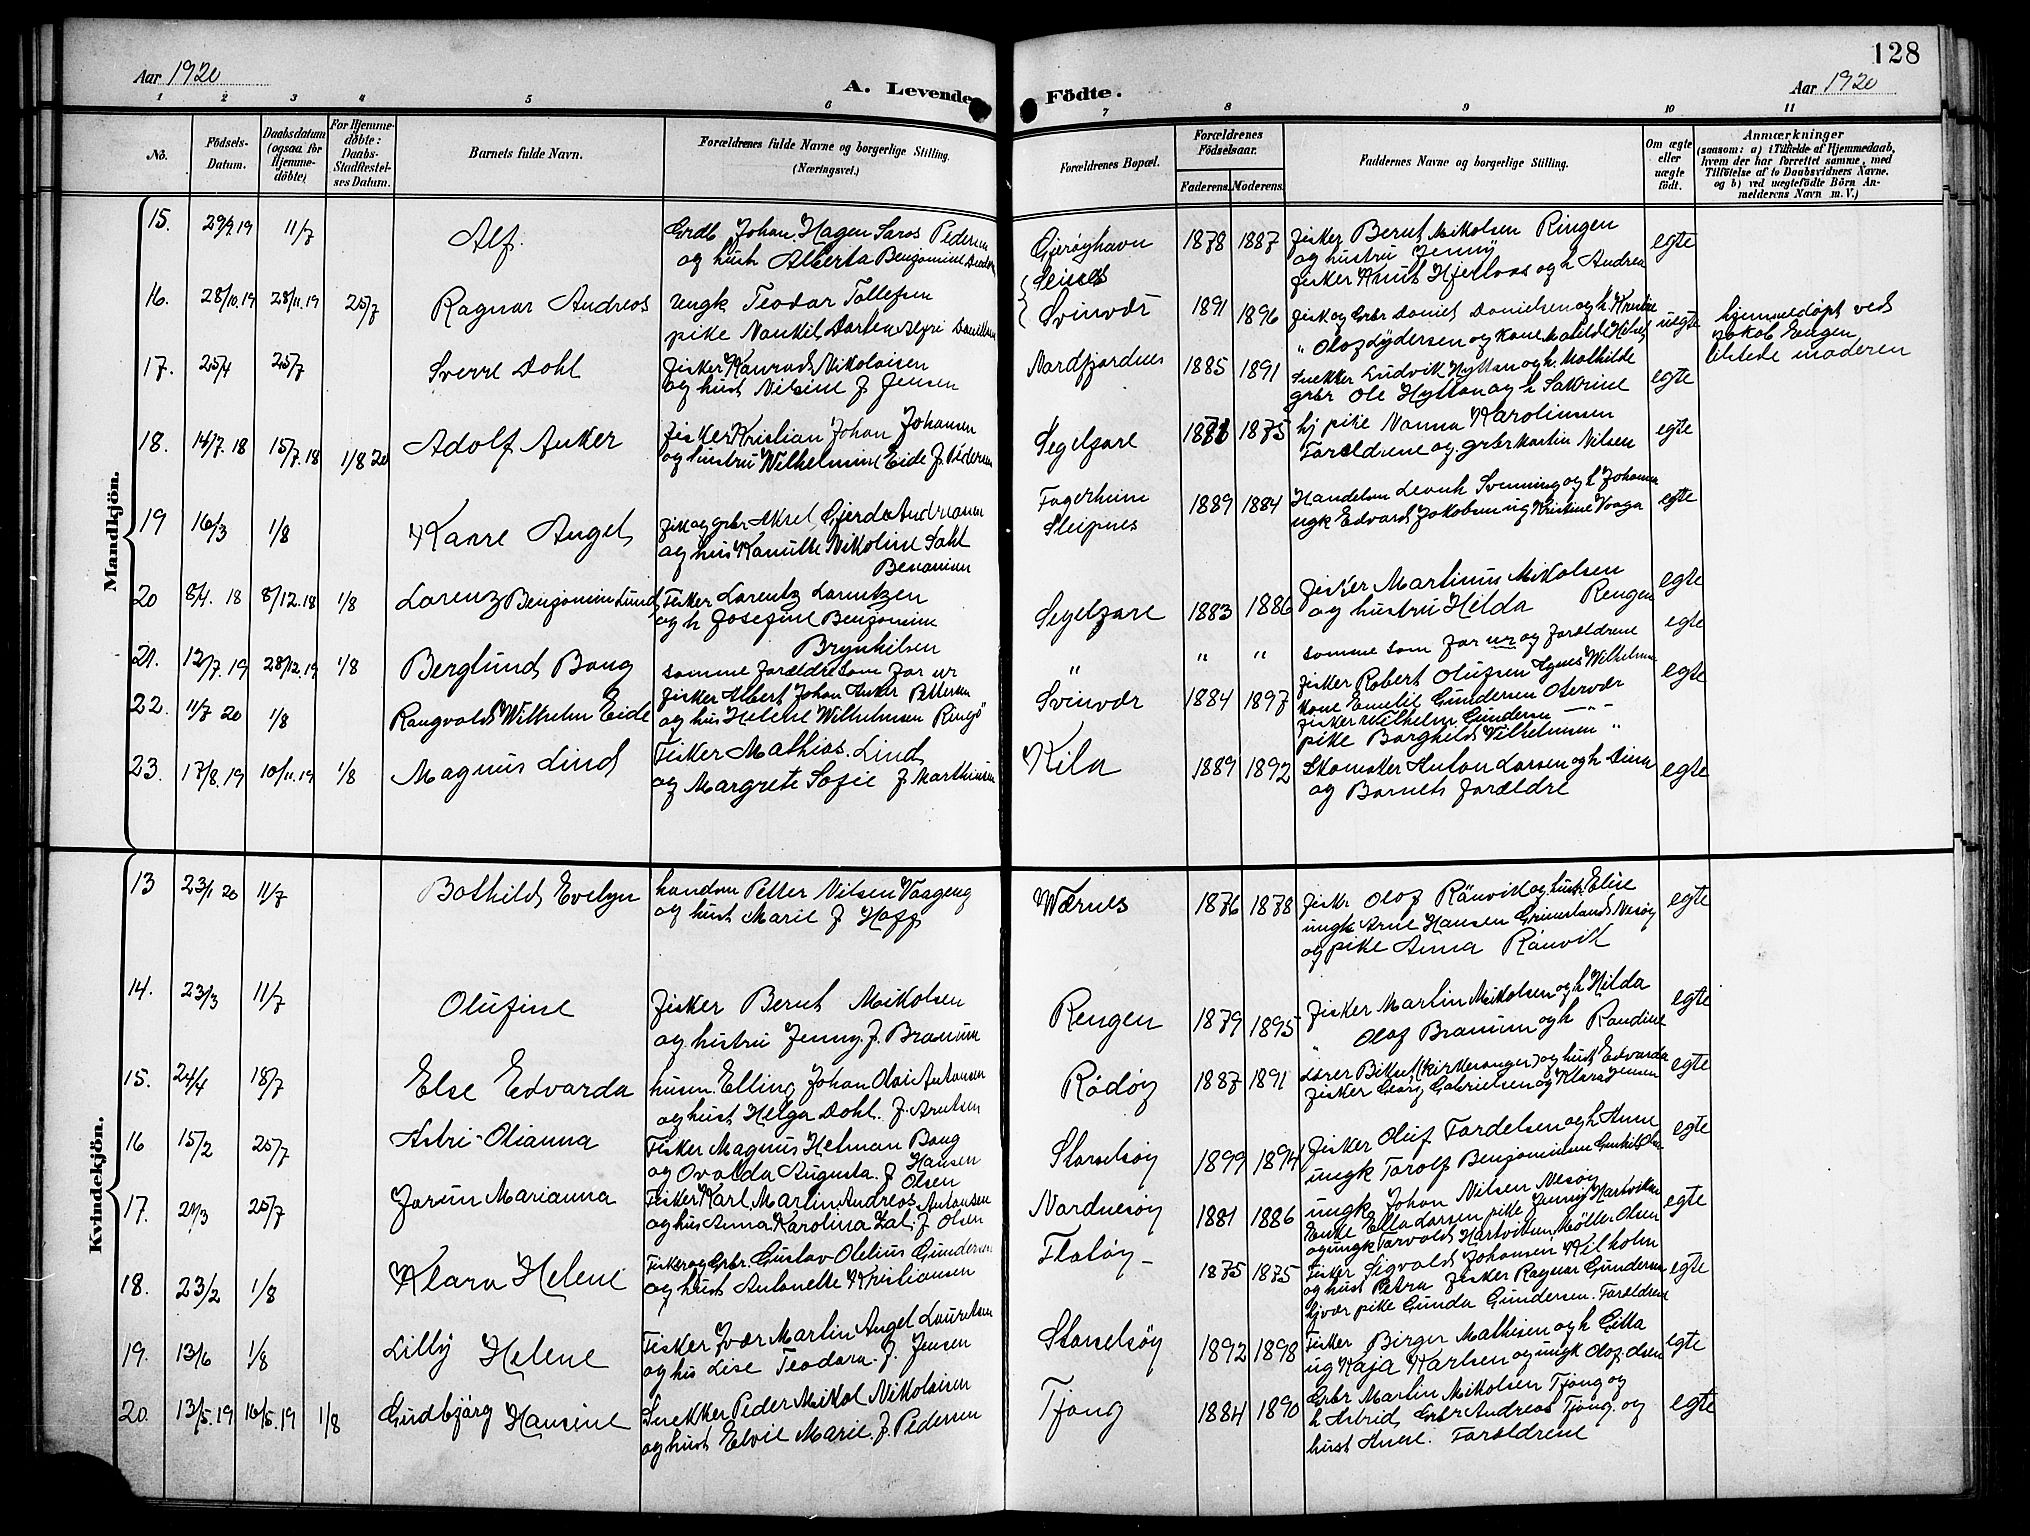 128
Aar 1920
A. Levende Födte.
Aar 1920
1 2 3 4 5 6 7 8 9 10 11
No.
Födsels-Datum.
Daabsdatum (ogsaa for Hjemme-döbte).
For Hjemme-döbte: Daabs-Stadfæstel-ses Datum.
Barnets fulde Navn.
Forældrenes fulde Navne og borgerlige Stilling.
(Næringsvei.)
Forældrenes Bopæl.
Forældrenes Födselsaar.
Faderens. Moderens.
Faddernes Navne og borgerlige Stilling.
Om ægte eller uægte födt.
Anmærkninger
(saasom: a) i Tilfælde af Hjemmedaab,
hvem der har forrettet samme, med
Tilföielse af to Daabsvidners Navne.
og b) ved uægtefödte Börn An-
melderens Navn m. V.)
Mandkjön.
15. 29/9.19 11/7 Alf. Johan Hagen Saros Pedersen
og hust Alberta Benjamine
Gjeröyhavn 1878 1887 fisker Bernt Mikolsen Ringen
og hustru Jenny
fisker Knut Hjertaas og h Andrea egte
16. 28/10.19 28/11.19 25/7 Ragnar Andreas ungk Teodor Tollefsen
pike
Svinvær 1891 1896 fisk og grbr Daniel Danielsen og h
" Olaf Lydersen og kone Matilde uegte hjemmedöpt ved
Jakob Engen
moderen
17. 25/4 25/7 Sverre Dahl fisker Konrad Nikolaisen
og hust Nilsine f. Jensen
Nordfjordnes 1885 1891 Snekker Ludvik Hyttan og h. Mathilde
grbr Ole Hyttan og h Sakrine egte
18. 14/7.18 15/7.18 1/8 20 Adolf Anker fisker Kristian Johan Johansen
og hustru Wilhelmine Eide f. Pedersen
Segelfore 1875 pike Nanna Karolinsen
Foreldrene og grbr Martin Nilsen egte
19 16/3 1/8 Kaare Angel fisk og grbr Aksel Gjerda Andreasen
og hus Kamilla Nikoline Dahl
Benonisen
Fagerheim
Sleipnes 1889 1884 Handelsm Svenning og h Johanna
ugk Edvard Jakobsen og Kristine Vaaga egte
20 8/4.18 8/12.18 1/8 Lorenz Benjamin Lund Fisker Lorentz Lorntzen
og h Josefine Benjamine
Brynhilsen
Segelfore 1883 1886 fisker Martinus Mikolsen
og hustru Hilda Rengen egte
21. 12/7.19 28/12.19 1/8 Berglund Bang samme foreldre som for nr
" " " samme som for nr og foreldrene egte
22. 11/7 20 1/8 Rangvald Wilhelm Eide fisker Albert Johan Anker Pettersen
og hus Helene Wilhelmsen Ringö
Svinvær 1884 1897 fisker Robert Olufsen Agnes Wilhelmsen
kone Emelie Gundersen Otervær
fisker Wilhelm Gundersen — " —
pike Borghild Wilhelmsen " egte
23. 17/8.19 10/11.19 1/8 Magnus Lind Fisker Mathias Lind
og Margrete Sofie f. Marthinsen
Kila 1889 1892 Skomaker Anton Larsen og h Dina
og Barnets foreldre egte
Kvindekjön.
13 23/1 20 11/7 Bothild Evelyn handsm Petter Nilsen Vaageng
og hust Marie f Hoff
Wærnes 1876 1878 fisker Olaf Rånvik og hust. Elise
ungk Arne Hansen Grimsland Nesöy
og pike Anna Rånvik egte
14. 23/3 11/7 Olufine fisker Bernt Mikolsen
og hustru Jenny f. Bramun
Rengen 1879 1895 fisker Martin Mikolsen og h Hilda
" Olaf Bramun og h Randine egte
15. 24/4 18/7 Else Edvarda husm. Elling Johan Olai Antonsen
og hust Helga Dahl f. Arntsen
Rödöy 1887 1891 Lærer Bikset (kirkesanger) og hust Edvarda
fisker Georg Gabrielsen og Klara Jensen egte
16 15/2 25/7 Astri-Olianna Fisker Magnus Helman Bang
og Ovalda Augusta f. Hansen
Storselsöy 1899 1894 fisker Oluf Tordelsen og h Anne
ungk Torolf Benjaminsen egte
17. 21/3 25/7 Jorun Marianna Olsen
Fisker Karl Martin Andreas Antonsen
og hus Anna Karolina f. Olsen
Nordnesöy 1881 1886 ungk Johan Nilsen Nesöy
Enke Ella Larsen pike Jenny Hartviksen
og ungk Torvald Hartviksen Möller Olsen egte
18. 23/2 1/8 Klara Helene Fisker og Grbr. Gustav Olelius Gundersen
og hust Antonette Kristiansen
Flatöy 1875 1875 Fisker Sigvald Johansen Kilholm
og hust Petra fisker Ragnar Gundersen
pike Gunda Gundersen. Foreldrene egte
19. 13/6 1/8 Lilly Helene Fisker Ivar Martin Angel Lauritsen
og hus Lise Teodora f. Jensen
Storselsöy 1892 1898 Fisker Birger Mathisen og h Gitta
ug Kaja Karlsen og ungk Olaf Olsen egte
20. 13/5.19 16/5.19 1/8 Gudbjörg Hansine Snekker Peder Mikal Nikolaisen
og hust Elvie Marie f. Pedersen
Tjong 1884 1890 Grbr Martin Mikolsen Tjong og
h Astrid, Grbr Andreas Tjong og
hust Anne. Foreldrene egte